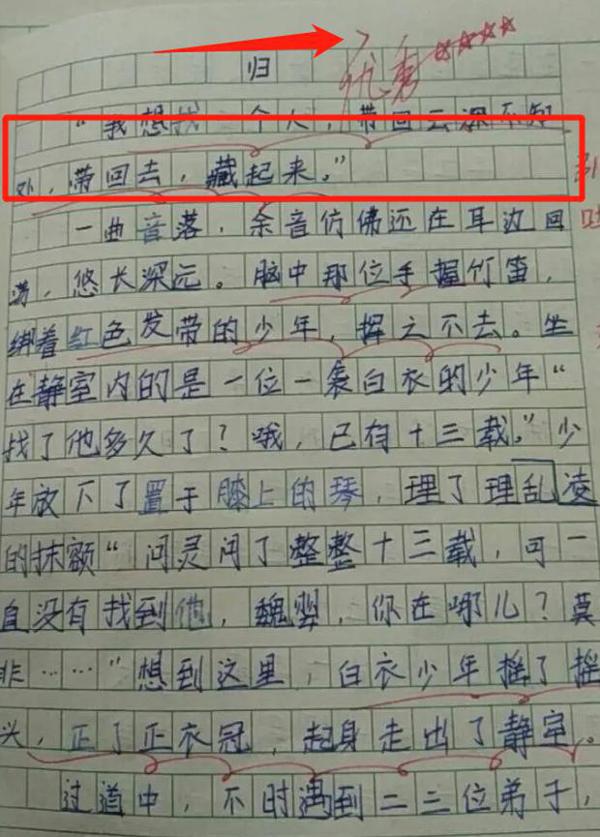 归 优秀
“我想找一个人，带回云深不知
处，带回去，藏起来。”
一曲音落，余音仿佛还在耳边回
荡，悠长深远。脑中那位手握竹笛，
绑着红色发带的少年，挥之不去。坐
在静室内的是一位一袭白衣的少年“
找了他多久了？哦，已有十三载。”少
年放下了置于膝上的琴，理了理乱凌
的抹额“问灵问了整整十三载，可一
直没有找到他，魏婴，你在哪儿？莫
非……”想到这里，白衣少年摇了摇
头，正了正衣冠，起身走出了静室。
过道中，不时遇到二三位弟子，